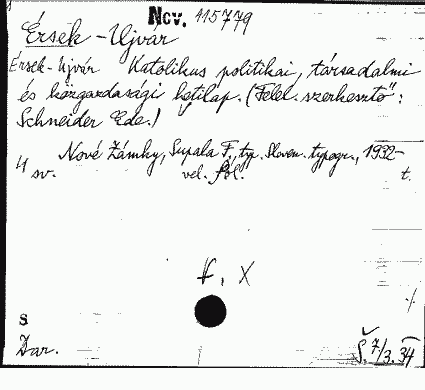 Nov. 115779
Érsék-Ujvár
Érsék-Ujvár Katolikus politikai, társadalmi
és közgazdasági hetilap. (Felel. szerkesztő:
Schneider Ede.)
Nové Zámky, Supala F., typ. Sloven. typogr., 1932-
4 sv. vel. fol. t.
f. X
S
Dar.
Š. 7/3. 34